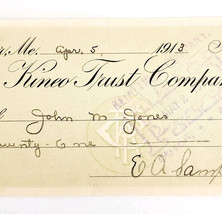 r, Me. Apr. 5, 1913
Kineo Trust Compan
John M Jones
wenty-one
E A Samp